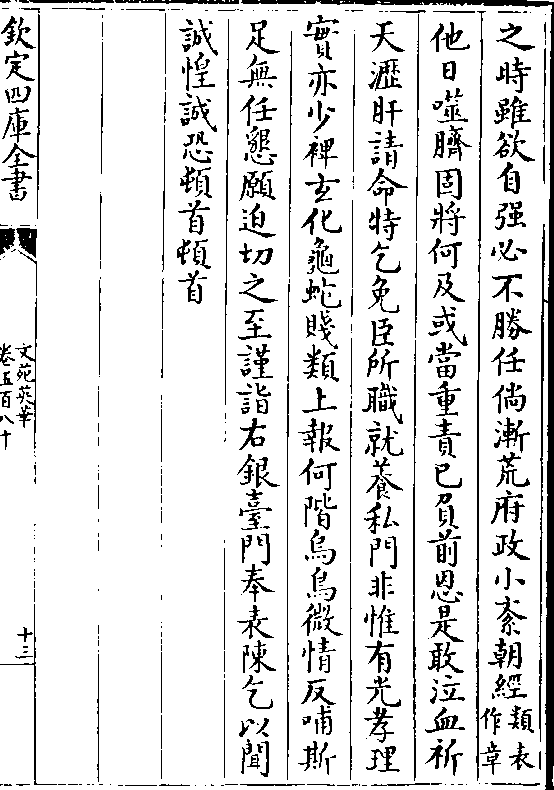 之時雖欲自强必不勝任倘漸荒府政小紊朝經類表作章
他日噬臍固將何及或當重責已負前恩是敢泣血祈
天瀝肝請命特乞免臣所職就養私門非惟有光孝理
實亦少裨玄化龜蛇賤類上報何階烏鳥微情反哺斯
足無任懇願迫切之至謹詣右銀臺門奉表陳乞以聞
誠惶誠恐頓首頓首
欽定四庫全書
文苑英華
卷五百八十
十三